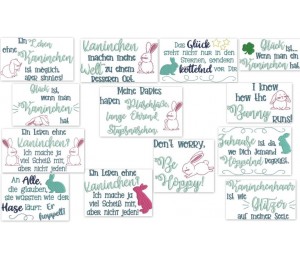 Ein Leben
ohne
Kaninchen
ist möglich,
aber sinnlos!
Kaninchen
machen meine
Welt zu einem
besseren Ort.
Das Glück
steht nicht nur in den
Sternen, sondern
kottelnd vor
Glück
ist, wenn man ein
Kaninchen
hat.
Glück
ist, wenn
man ein
Kaninchen
hat.
Meine Babies
haben Plüschfüße,
lange Ohren &
Stupsnäschen
I knew
how the
Bunny
runs!
Ein Leben ohne
Kaninchen?
Ich mache ja
viel Scheiß mit,
aber nicht jeden!
Don't worry,
Be
Hoppy!
Zuhause ist da,
wo Dich jemand
als Hoppelnd
begrüßt.
An Alle,
die glauben,
sie wüssten wie der
Hase läuft: Er
hoppelt!
Ein Leben ohne
Kaninchen?
Ich mache ja
viel Scheiß mit,
aber nicht jeden!
Kaninchenhaar
ist wie
Glitzer
auf meiner Seele